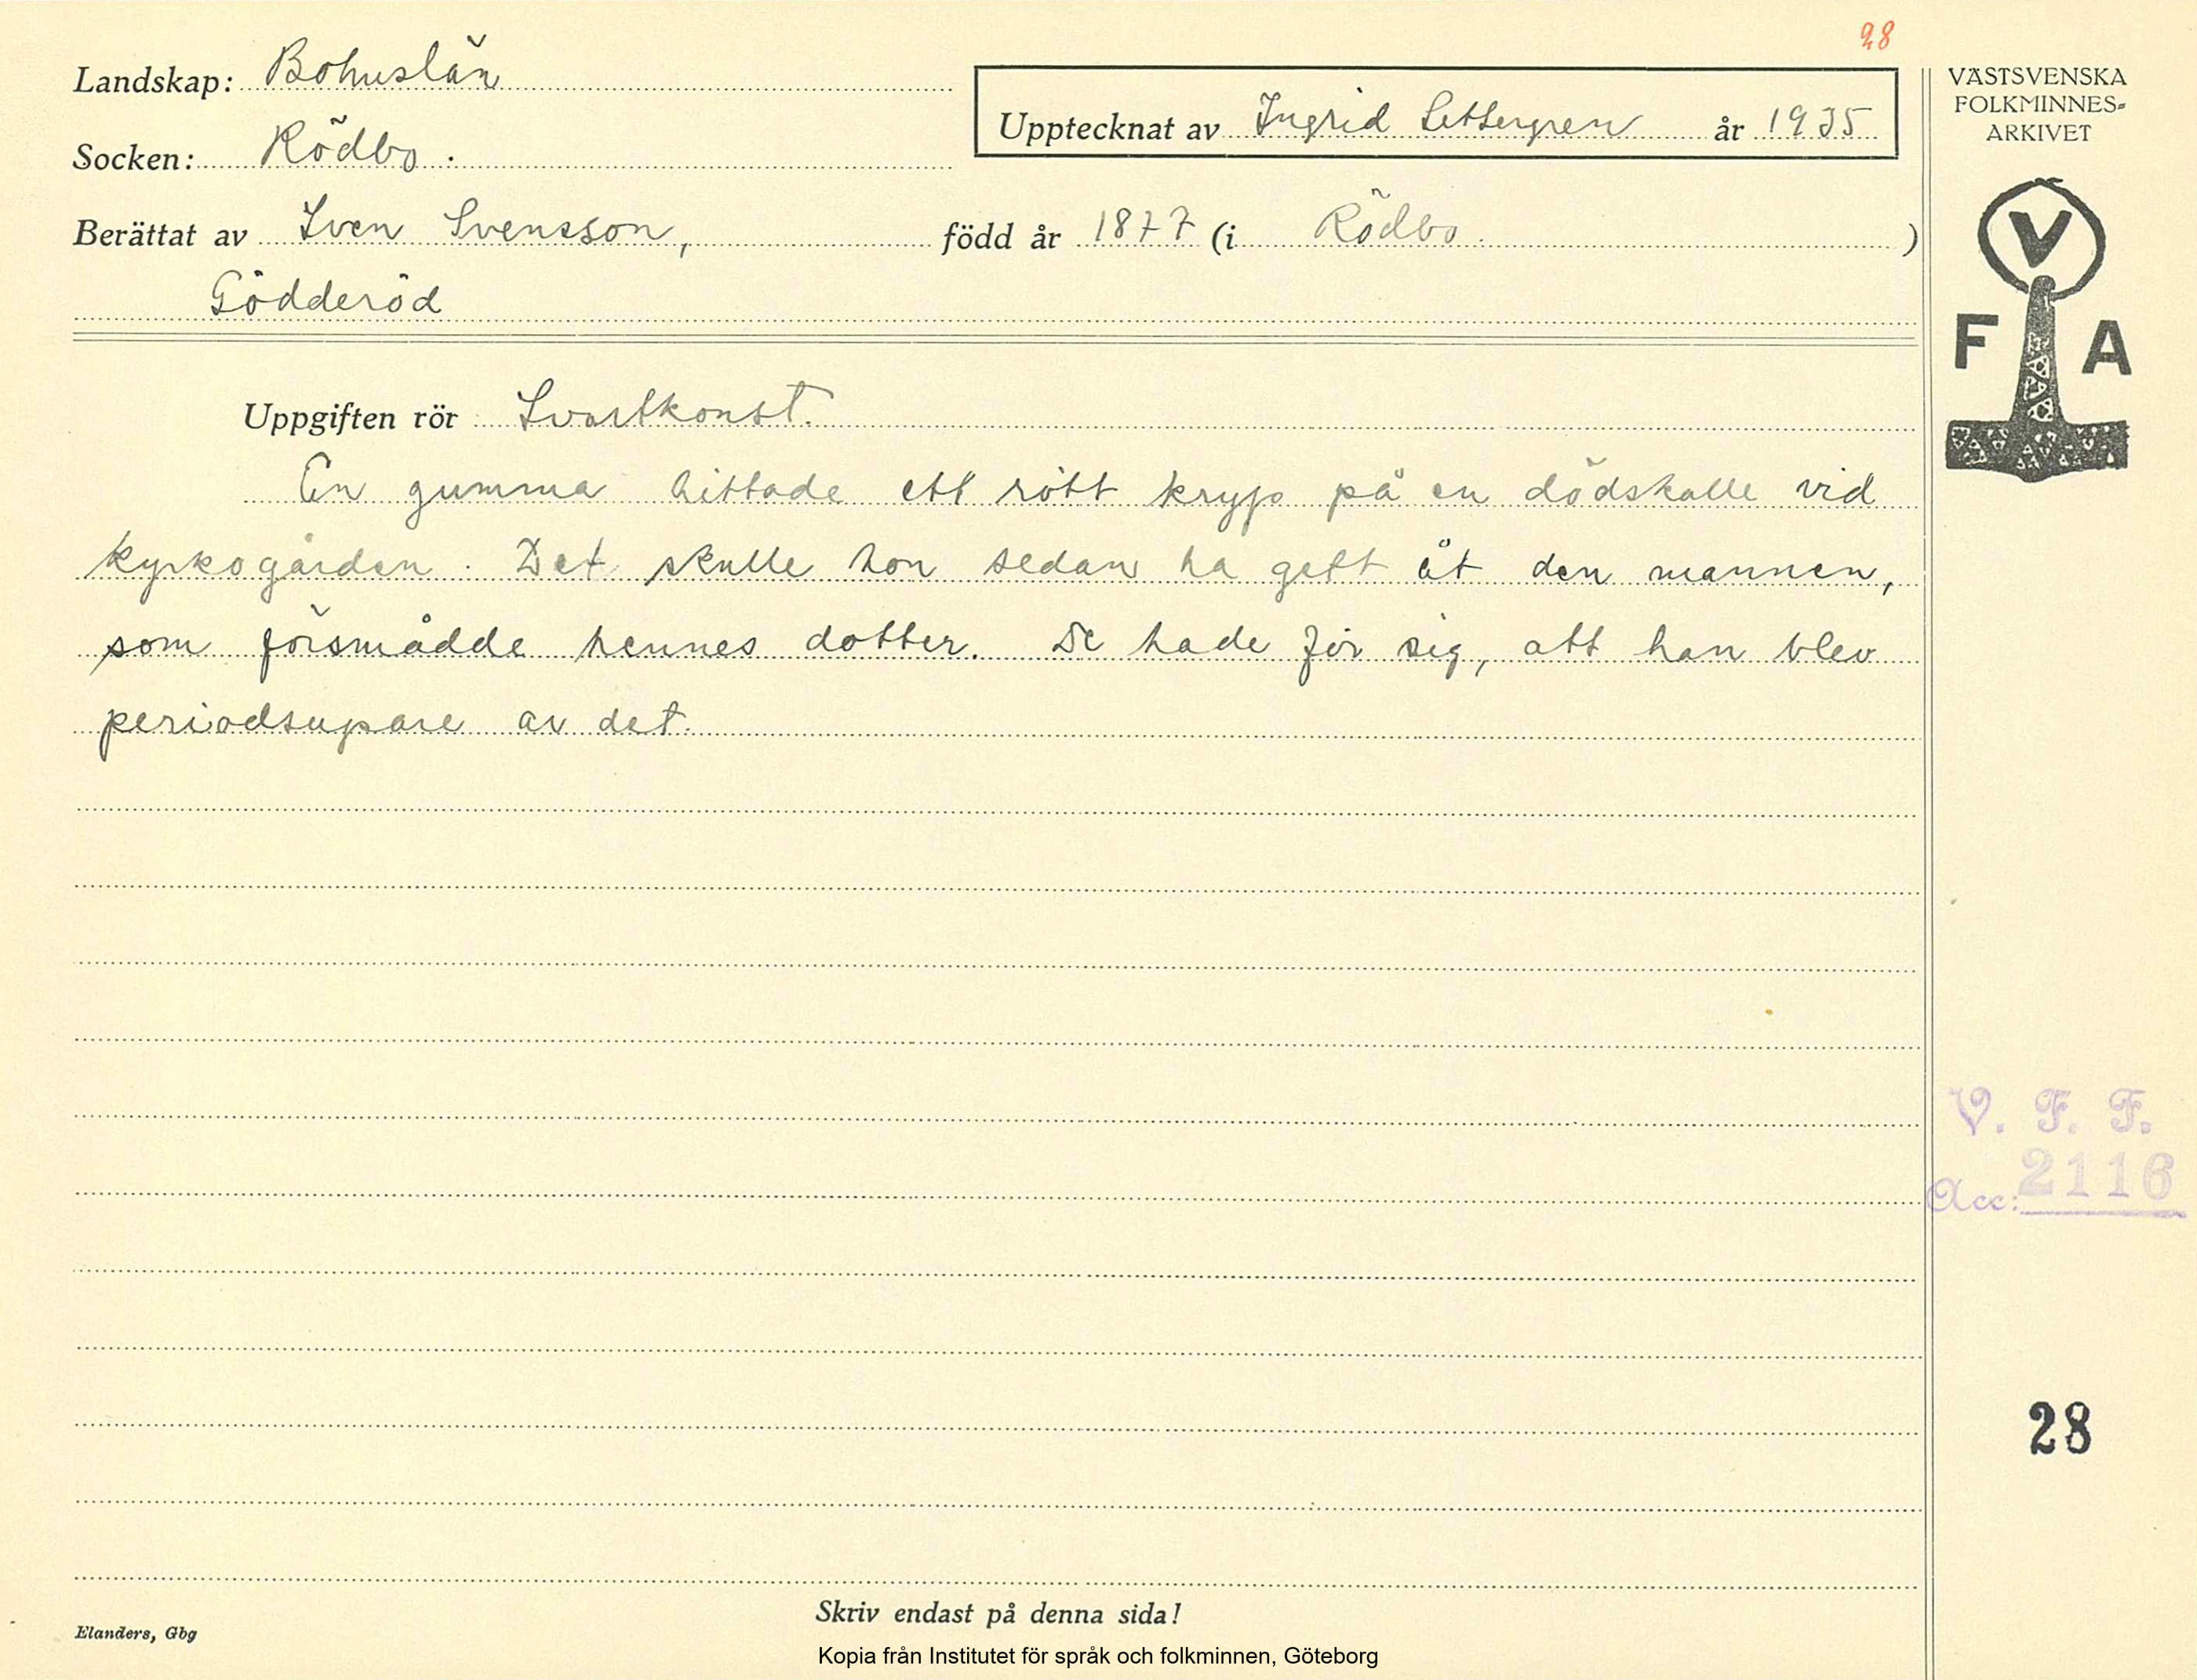 28
Landskap: Bohuslän
Upptecknat av Ingrid Settergren år 1935
Socken: Rödbo.
Berättat av Sven Svensson, född år 1877 (i Rödbo. )
Gödderöd
Uppgiften rör Svartkonst.
En gumma hittade ett rött kryp på en dödskalle vid
kyrkogården. Det skulle hon sedan ha gett åt den mannen,
som försmådde hennes dotter. De hade för sig, att han blev
periodsupare av det.
VÄSTSVENSKA
FOLKMINNES-
ARKIVET
V
F A
V. F. F.
Acc: 2116
28
Skriv endast på denna sida!
Elanders, Gbg
Kopia från Institutet för språk och folkminnen, Göteborg